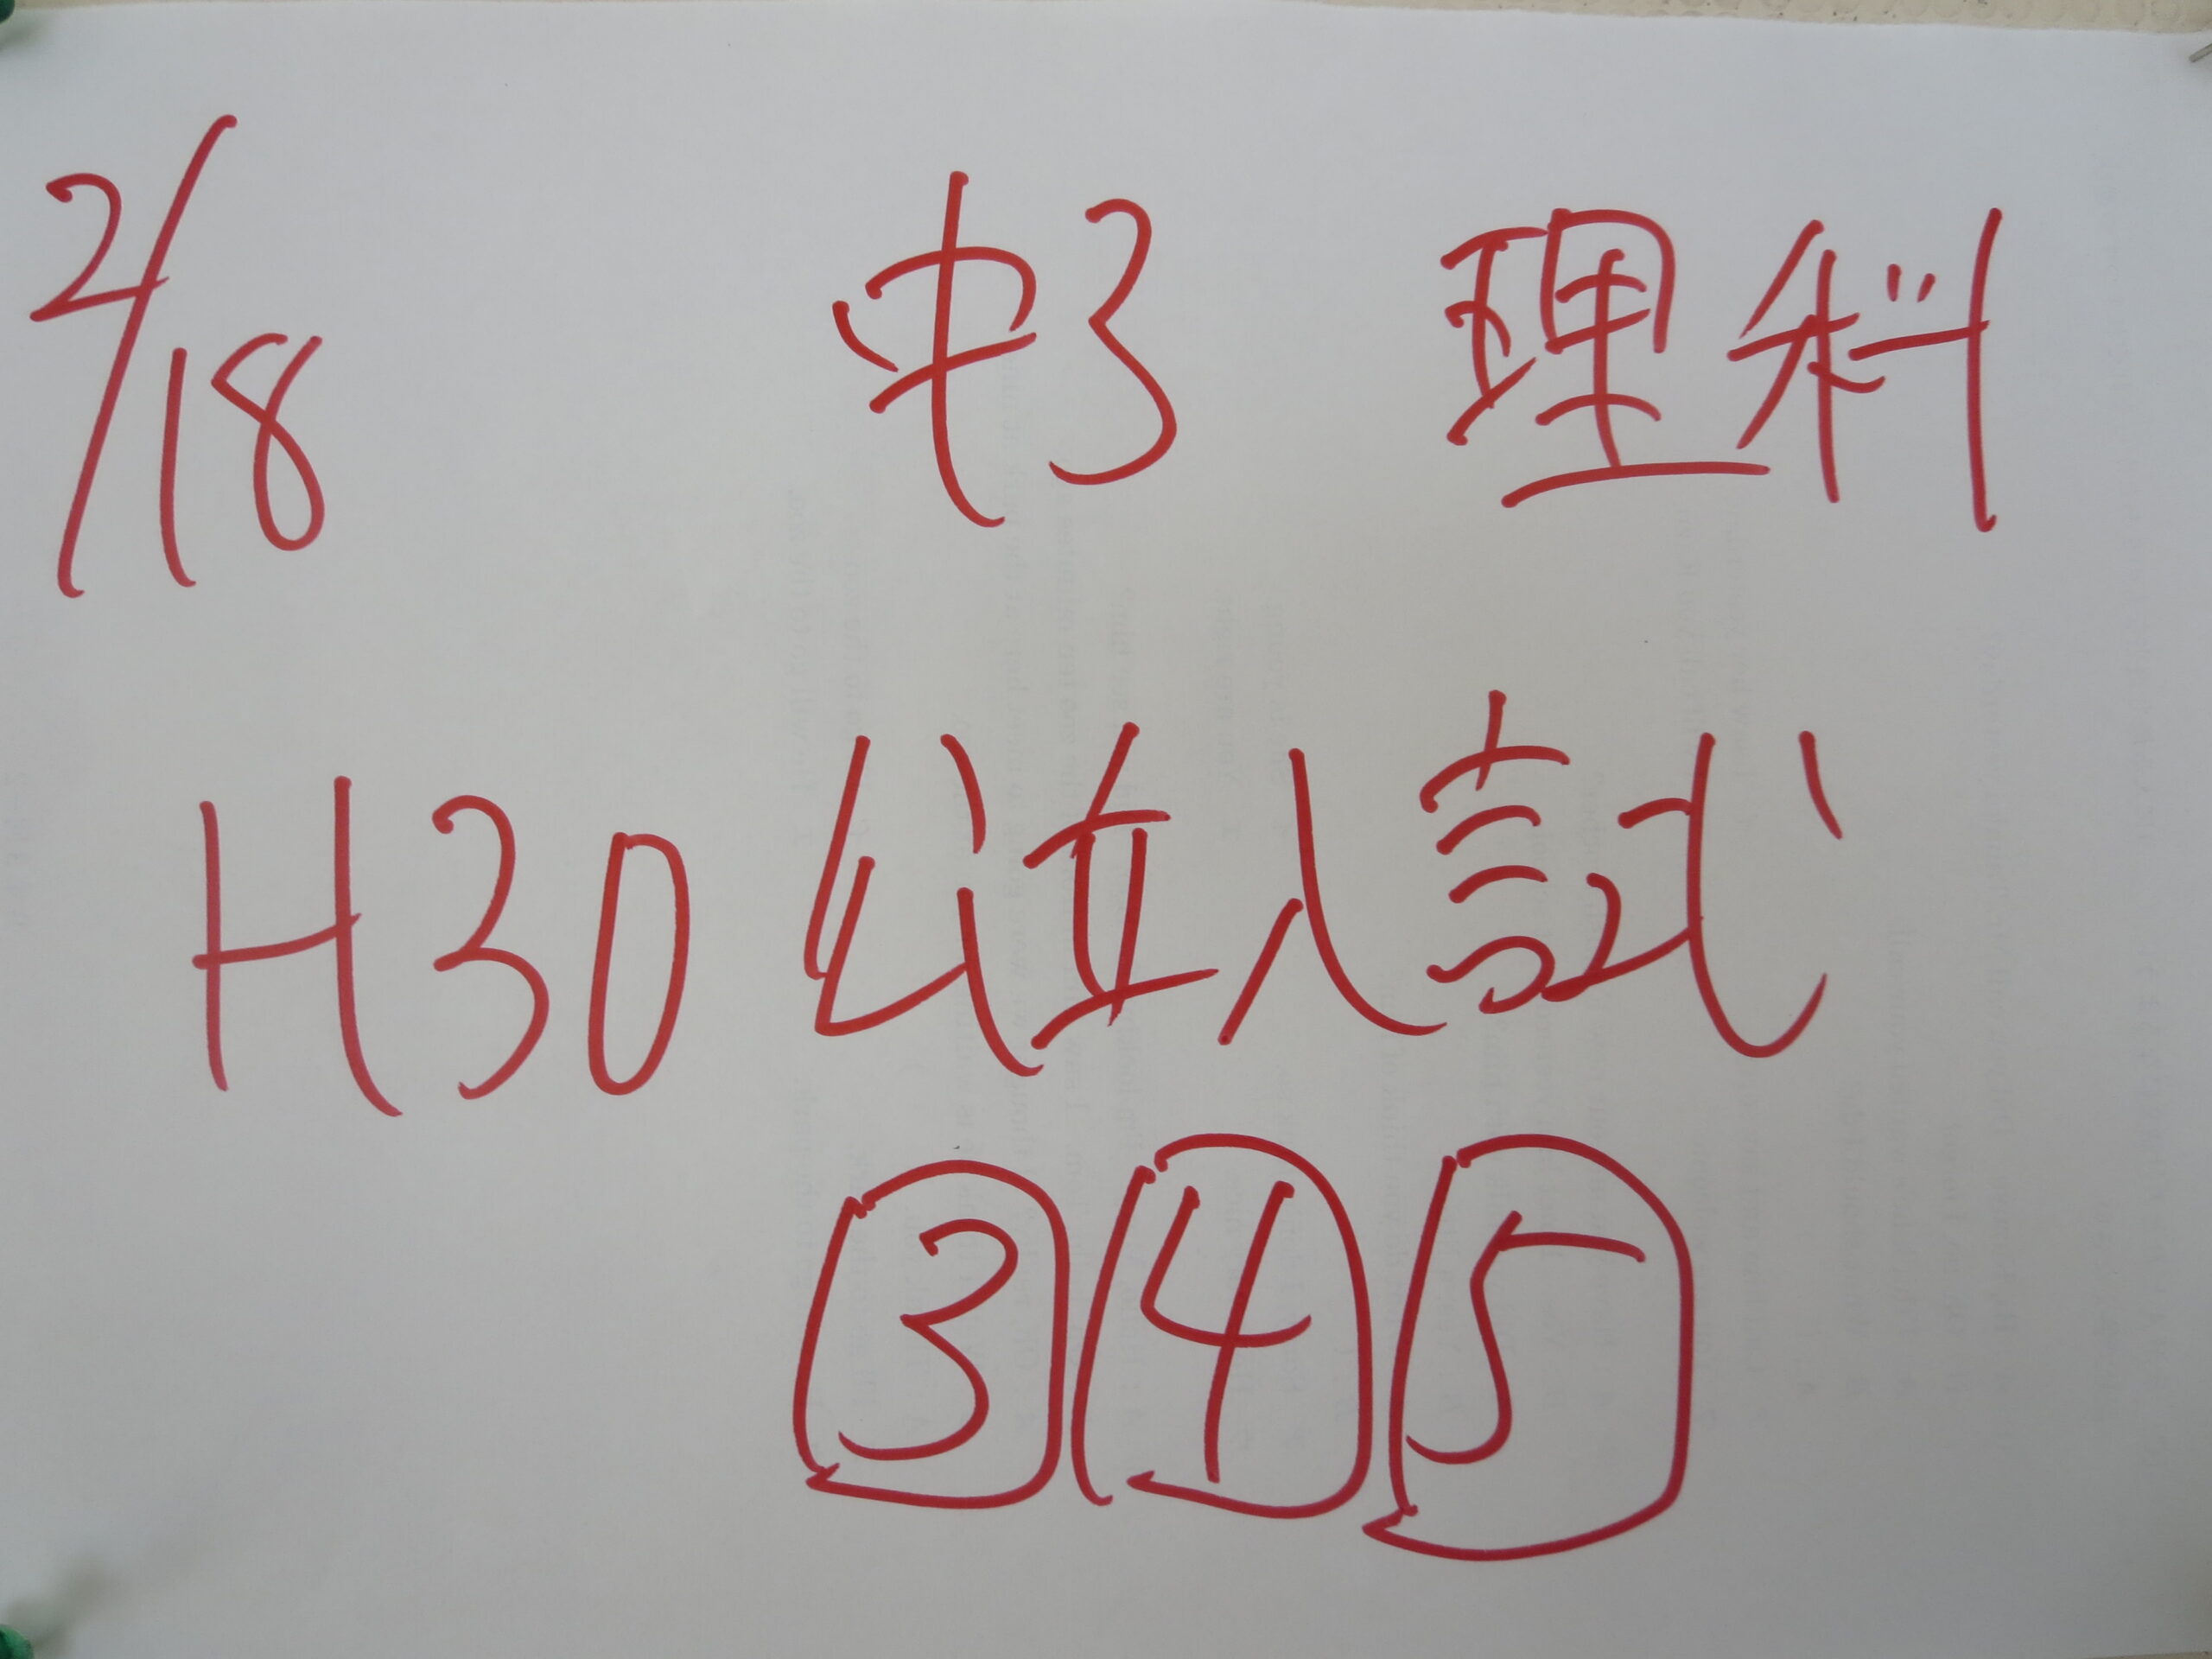 2/18 中3 理科
H30 公立入試
3 4 5